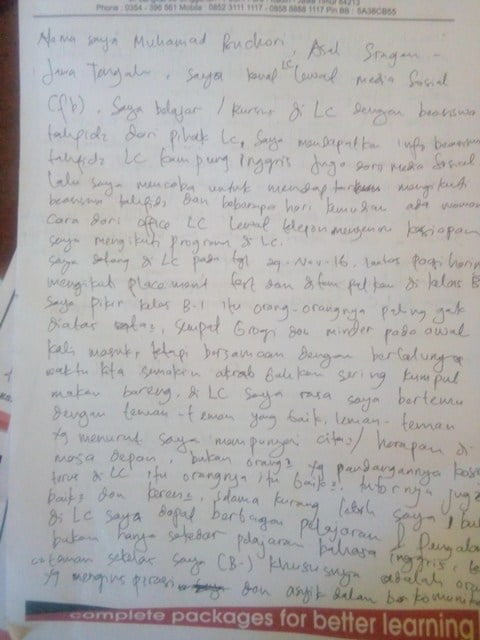 Phone : 0354 - 396 561 Mobile : 0852 3111 1117 - 0858 5858 1117 Pin BB : 5A38CB55
Nama saya Muhamad Buchori, Asal Sragen -
Jawa Tengah, saya kenal LC lewat media Sosial
(fb), saya belajar / kursus di LC dengan beasiswa
tahfidz dari pihak LC, saya mendapatkan info beasiswa
tahfidz LC kampung Inggris juga dari media Sosial
lalu saya mencoba untuk mendaptarkan mengikuti
beasiswa tahfidz dan beberapa hari kemudian ada wawan
cara dari office LC Lewat telepon mengenai kesiapan
saya mengikuti program di LC.
saya datang di LC pada tgl 29-Nov-16, lantas pagi harin
mengikuti placement test dan ditempatkan di kelas B
saya pikir kelas B-1 itu orang-orangnya paling gak
diatas rata2, sempat Grogi dan minder pada awal
kali masuk, tetapi bersamaan dengan berlalunga
waktu kita semakin akrab bahkan sering kumpul
makan bareng, di LC saya rasa saya bertemu
dengan teman-teman yang baik, teman-teman
yg menurut saya mempunyai cita2/ harapan di
masa depan, bukan orang2 yg pandangannya koso
terus di LC itu orangnya itu baik2, tutornya juga
baik2 dan keren2, selama kurang lebih saya 1 bul
di LC saya dapat berbagai pelajaran & Pengala
bukan hanya sekedar pelajaran bahasa Inggris,
teman sekelas saya (B-1) khususnya adalah oran
yg menginspirasi dan asyik dalam berkomunika
complete packages for better learning